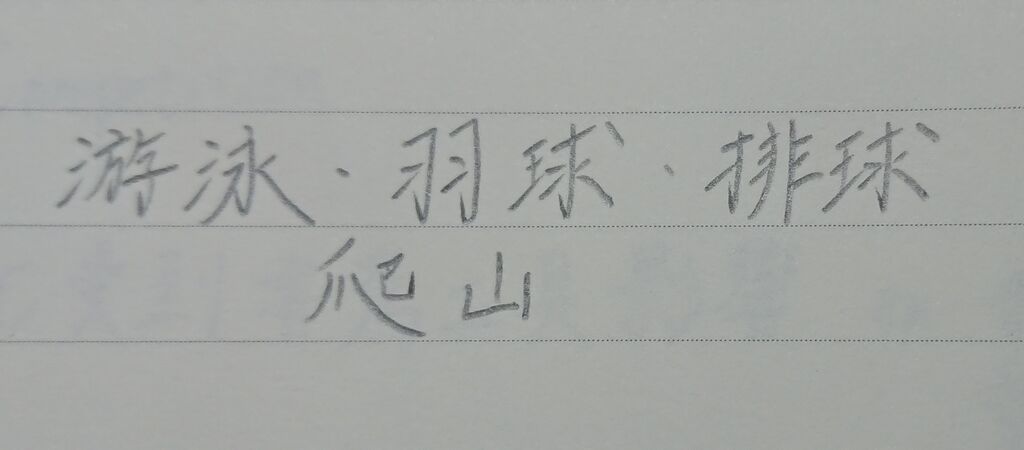 游泳·羽球·排球
爬山